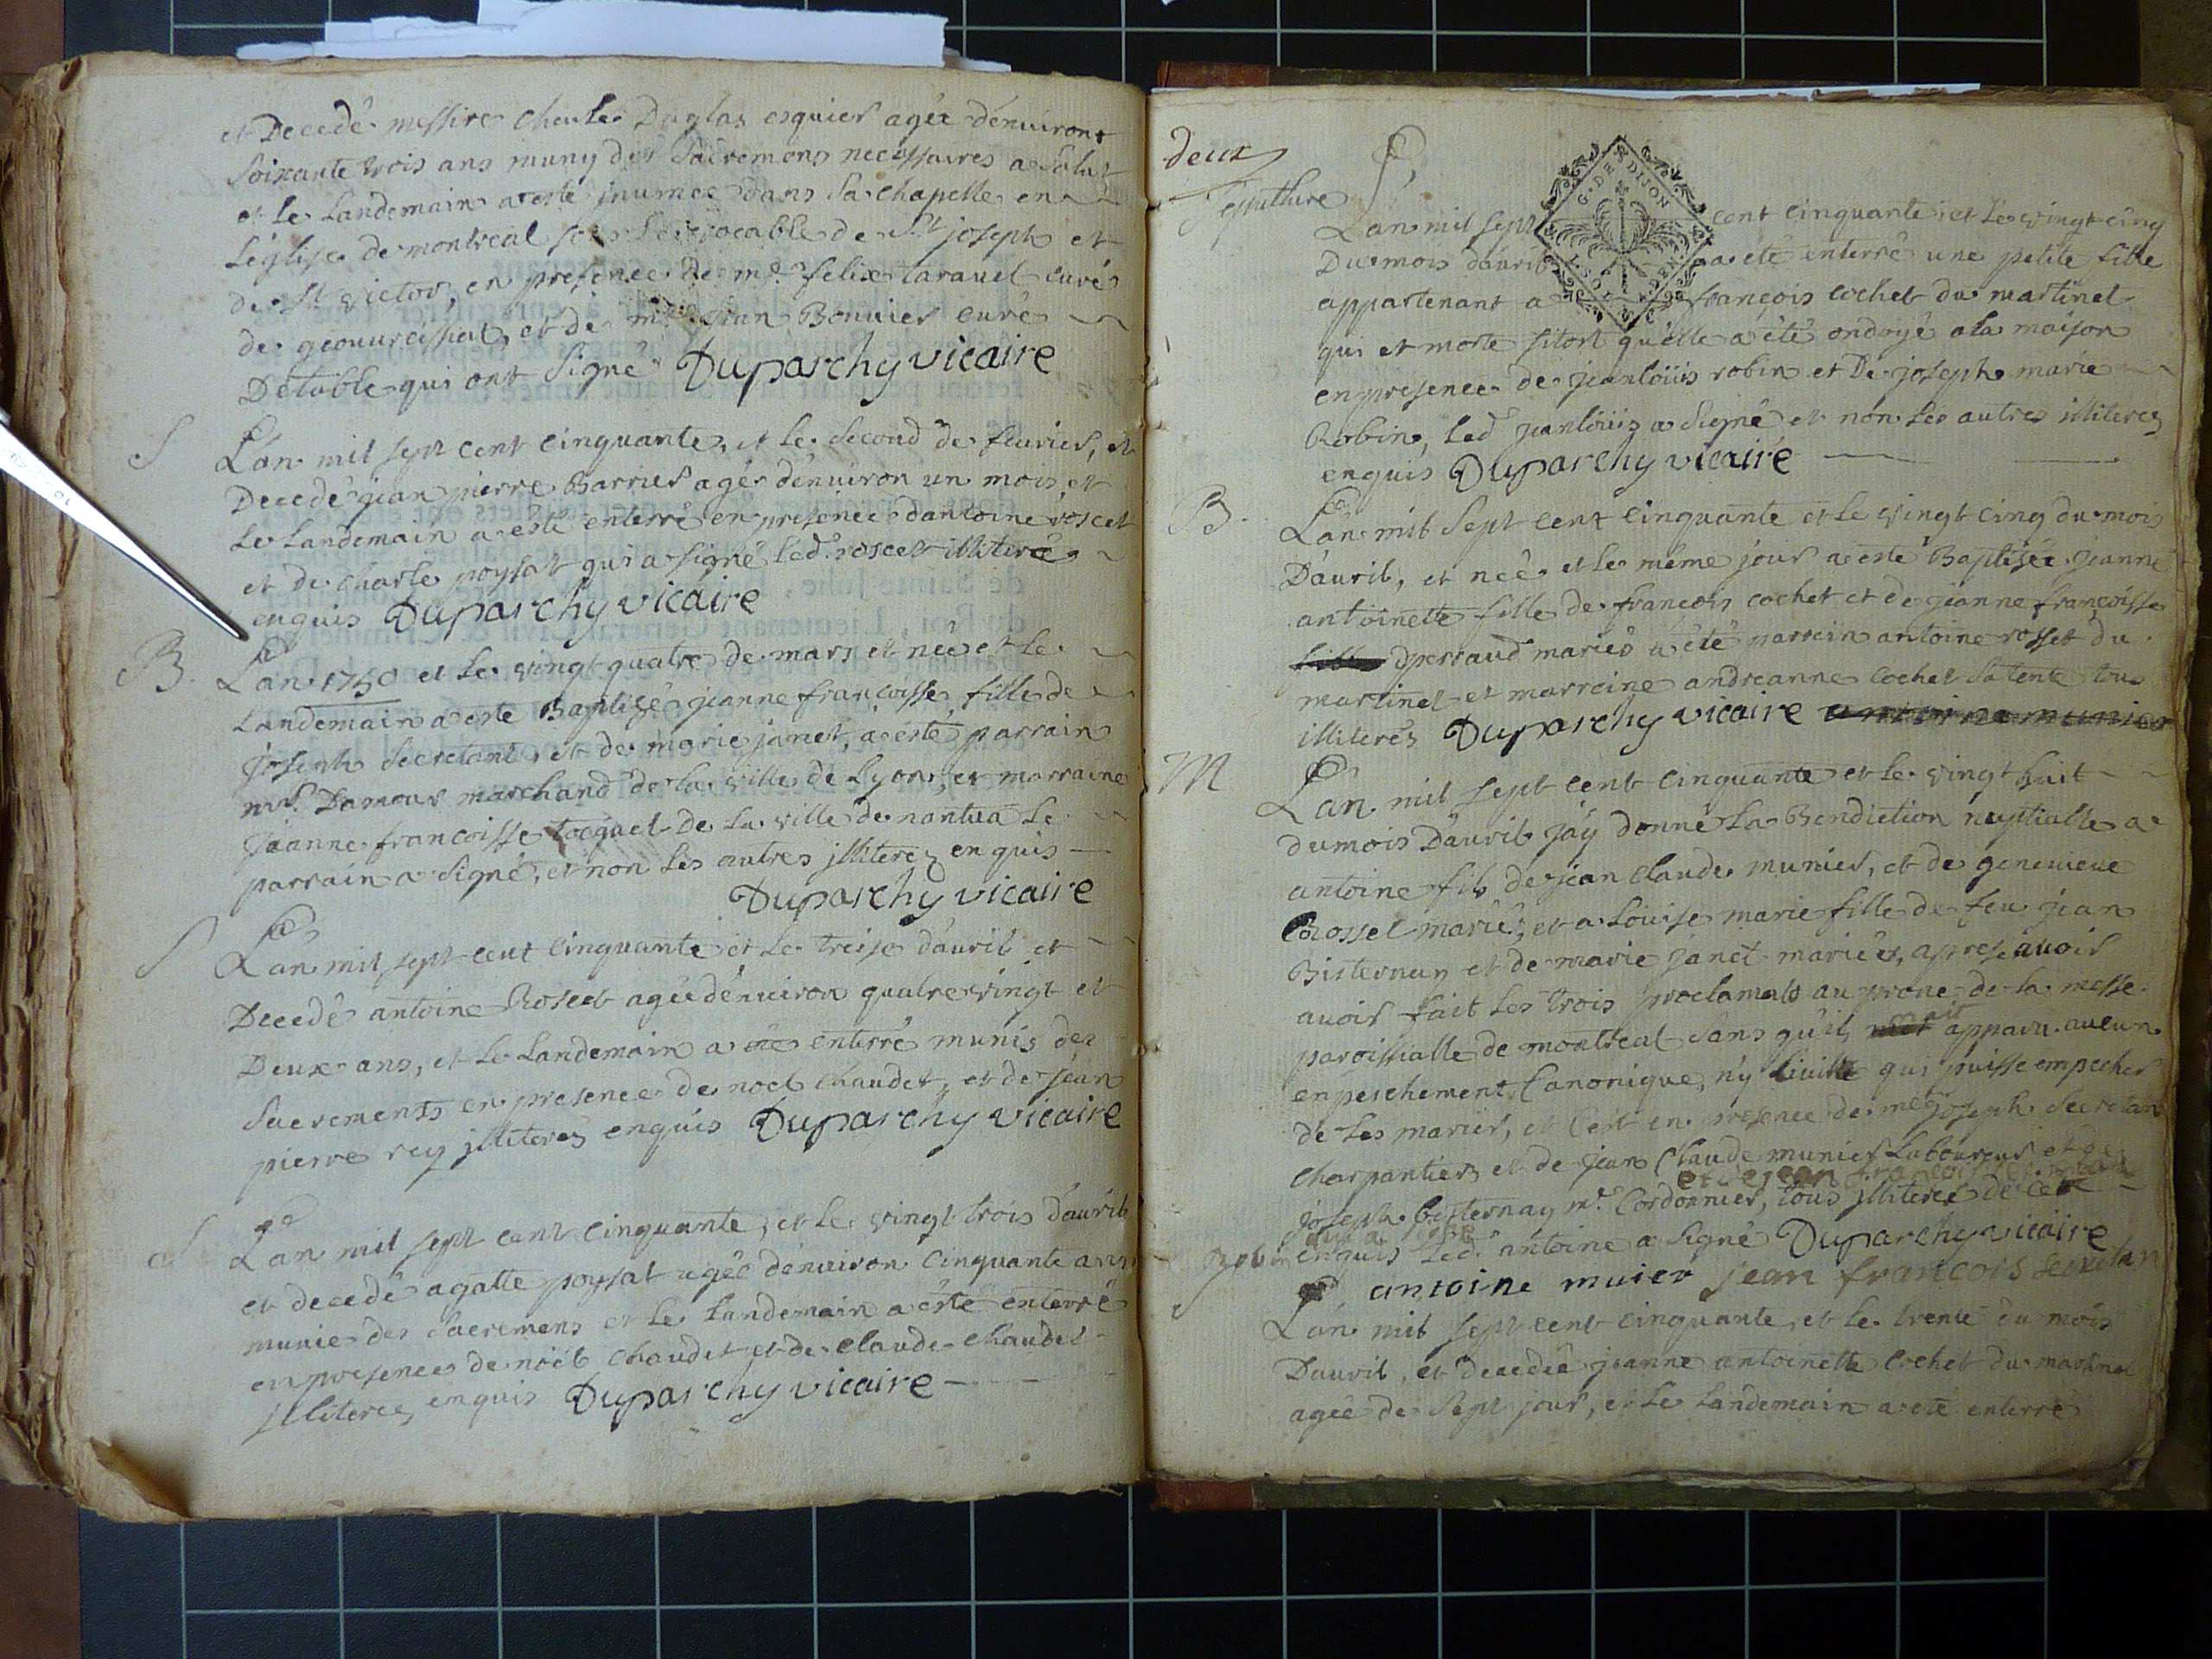 et Decedé messire Charle Duglas esquier agée dénuiront
Soixante trois ans muny des Sacremens necessaires a Salut
et le Landemain a esté jnumée dans sa chapelle en
Léglise de montreal sous le vocable de St joseph et
de St victor, en presence de mr felix taravel curé
de geovreissiat, et de mr jean Bouvier curé
Détable qui ont Signé Duparchy vicaire
S
Lán mil sept cent cinquante, et le second de feurier, et
Decedé jean pierre Barrier agée dénuiron un mois, et
Le Landemain a esté enterré en presence dantoine roset
et de charle poysat qui a signé led. roset illiteré
enquis Duparchy vicaire
B.
Lán 1750 et le vingt quatre de mars et née et le
Landemain a esté Baptizé jeanne francoisse fille de
joseph Secretant, et de marie janet, a esté parrain
mr. Damour marchand de la ville de Lyon, et marraine
jeanne francoisse tocquet De la ville de nantua le
parrain a signé, et non les autres jlliterez enquis
Duparchy vicaire
S
Lán mil sept cent cinquante et le treise dáuril et
Decedé antoine Roset agée dénuiron quatre vingt et
Deux ans, et le Landemain a été enterré munis des
Sacrements en presence de noel chaudet, et de jean
pierre rey jlliterez enquis Duparchy vicaire
S
Lán mil sept cent cinquante, et le vingt trois dáuril
et decedé agatte poysat agée dénuiron cinquante ans
munie des Sacremens et le Landemain a esté enterré
en presence de noël chaudet et de claude chaudet
jlliterez enquis Duparchy vicaire
deux
Sepulture
Lan mil sept cent cinquante et le vingt cinq
G. DE DIJON
Du mois dáuril a été enterré une petite fille
appartenant a françois cochet du martinet
qui et morte sitost quélle a été ondoyé a la maison
en presence de jean loüis robin et De joseph marie
Robin, led jean loüis a Signé et non les autres illiterez
enquis Duparchy vicaire
B.
Lán mil Sept cent cinquante et le vingt cinq du mois
Dáuril, et née et le méme jour a esté Baptisée jeanne
antoinette fille de francois cochet et de jeanne françoisse
perraud mariés a été parrein antoine rosset du
martinet et marreine andreanne cochet sa tente tou
illiterez Duparchy vicaire antoine munier
M
Lán mil sept cent cinquante et le vingt huit
du mois Dáuril jáy donné La Bendiction nuptialle a
antoine fils de jean claude munier, et de genevieve
Rossel mariés, et a Louise marie fille de feu jean
Bisternay et de marie janet mariés, apres auoir
auoir fait les trois proclamats au prone de la messe
paroissialle de montreal sans quíl nait apparu aucun
enpeschement Canonique, ny Civille qui puisse empecher
de les marier, et cést en presence de me joseph Secretan
Charpantier et de jean Claude munier Laboureur et de
et de jean francois
joseph bisternay mr. Cordonnier, tous jlliterez de ce
enquis led. antoine a Signé Duparchy vicaire
antoine muier jean francois secretan
Lán mil sept cent cinquante, et le trente du mois
Dauril, et decedée jeanne antoinette cochet du martinet
agée de Sept jour, et le Landemain a été enterré